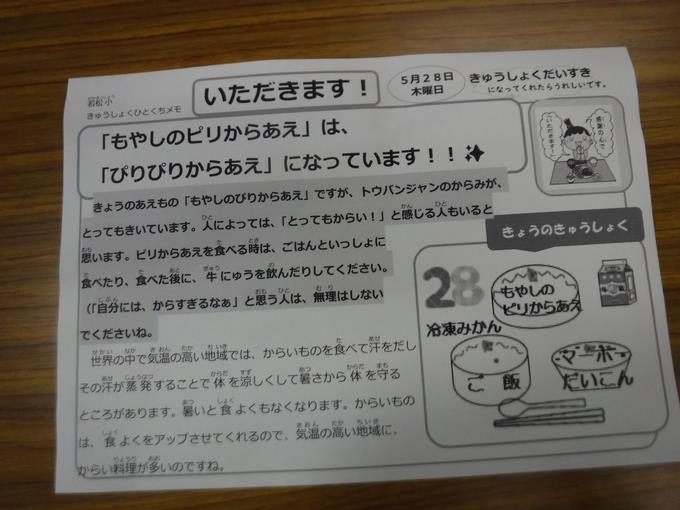 若松小
きゅうしょくひとくちメモ
いただきます！
5月28日
木曜日
きゅうしょくだいすき
になってくれたらうれしいです。
「もやしのピリからあえ」は、
「ぴりぴりからあえ」になっています！！
感謝の心で
いただきます！
きょうのあえもの「もやしのぴりからあえ」ですが、トウバンジャンのからみが、
とってもきいています。人によっては、「とってもからい！」と感じる人もいると
思います。ピリからあえを食べる時は、ごはんといっしょに
食べたり、食べた後に、牛にゅうを飲んだりしてください。
（「自分には、からすぎるなぁ」と思う人は、無理はしない
でくださいね。
世界の中で気温の高い地域では、からいものを食べて汗をだし
その汗が蒸発することで体を涼しくして暑さから体を守る
ところがあります。暑いと食よくもなくなります。からいもの
は、食よくをアップさせてくれるので、気温の高い地域に、
からい料理が多いのですね。
きょうのきゅうしょく
28
もやしの
ピリからあえ
冷凍みかん
ご飯
マーボー
だいこん